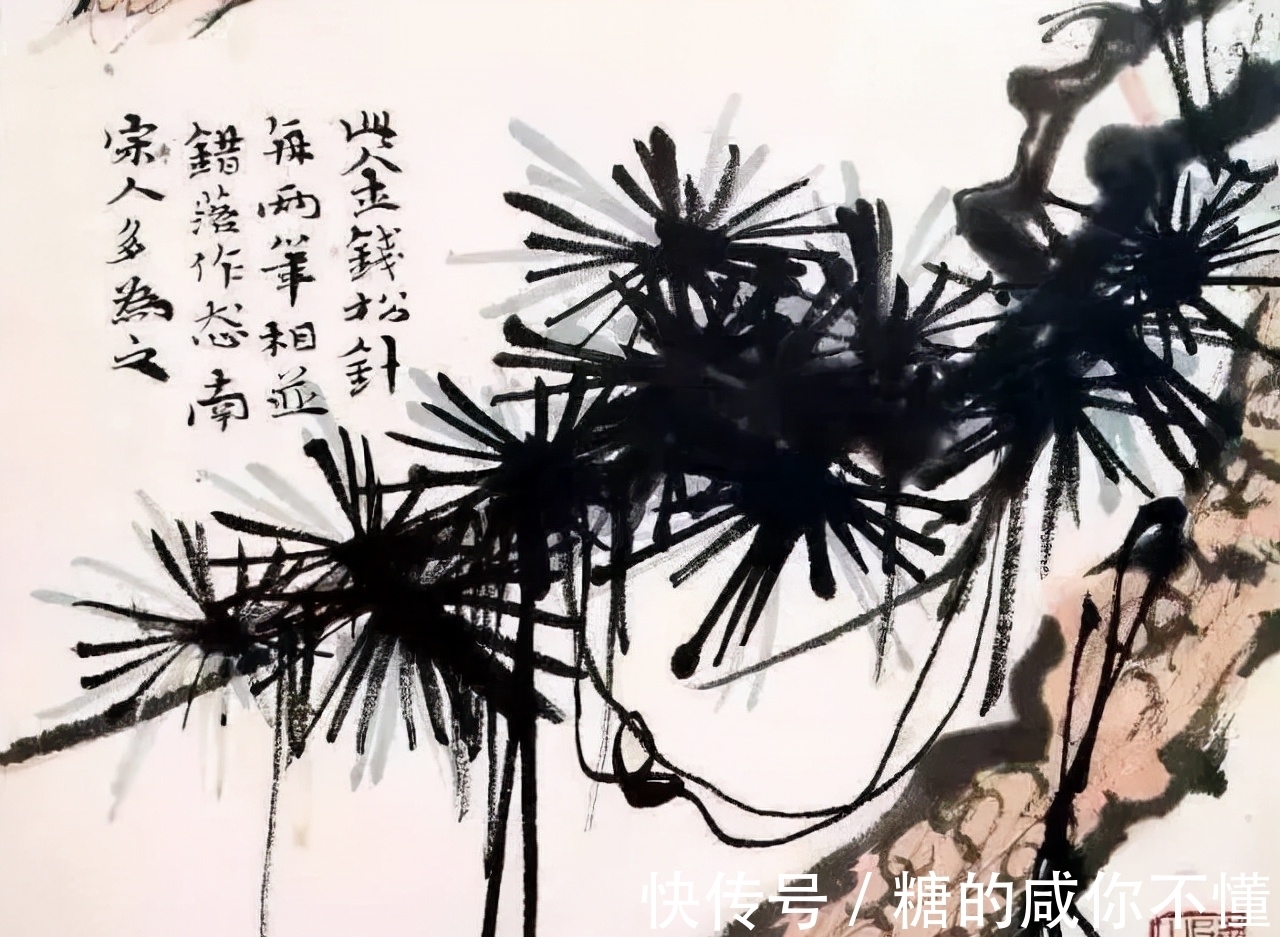 此金錢松針
每兩筆相並
錯落作态南
宗人多為之
快传号 / 糖的咸你不懂